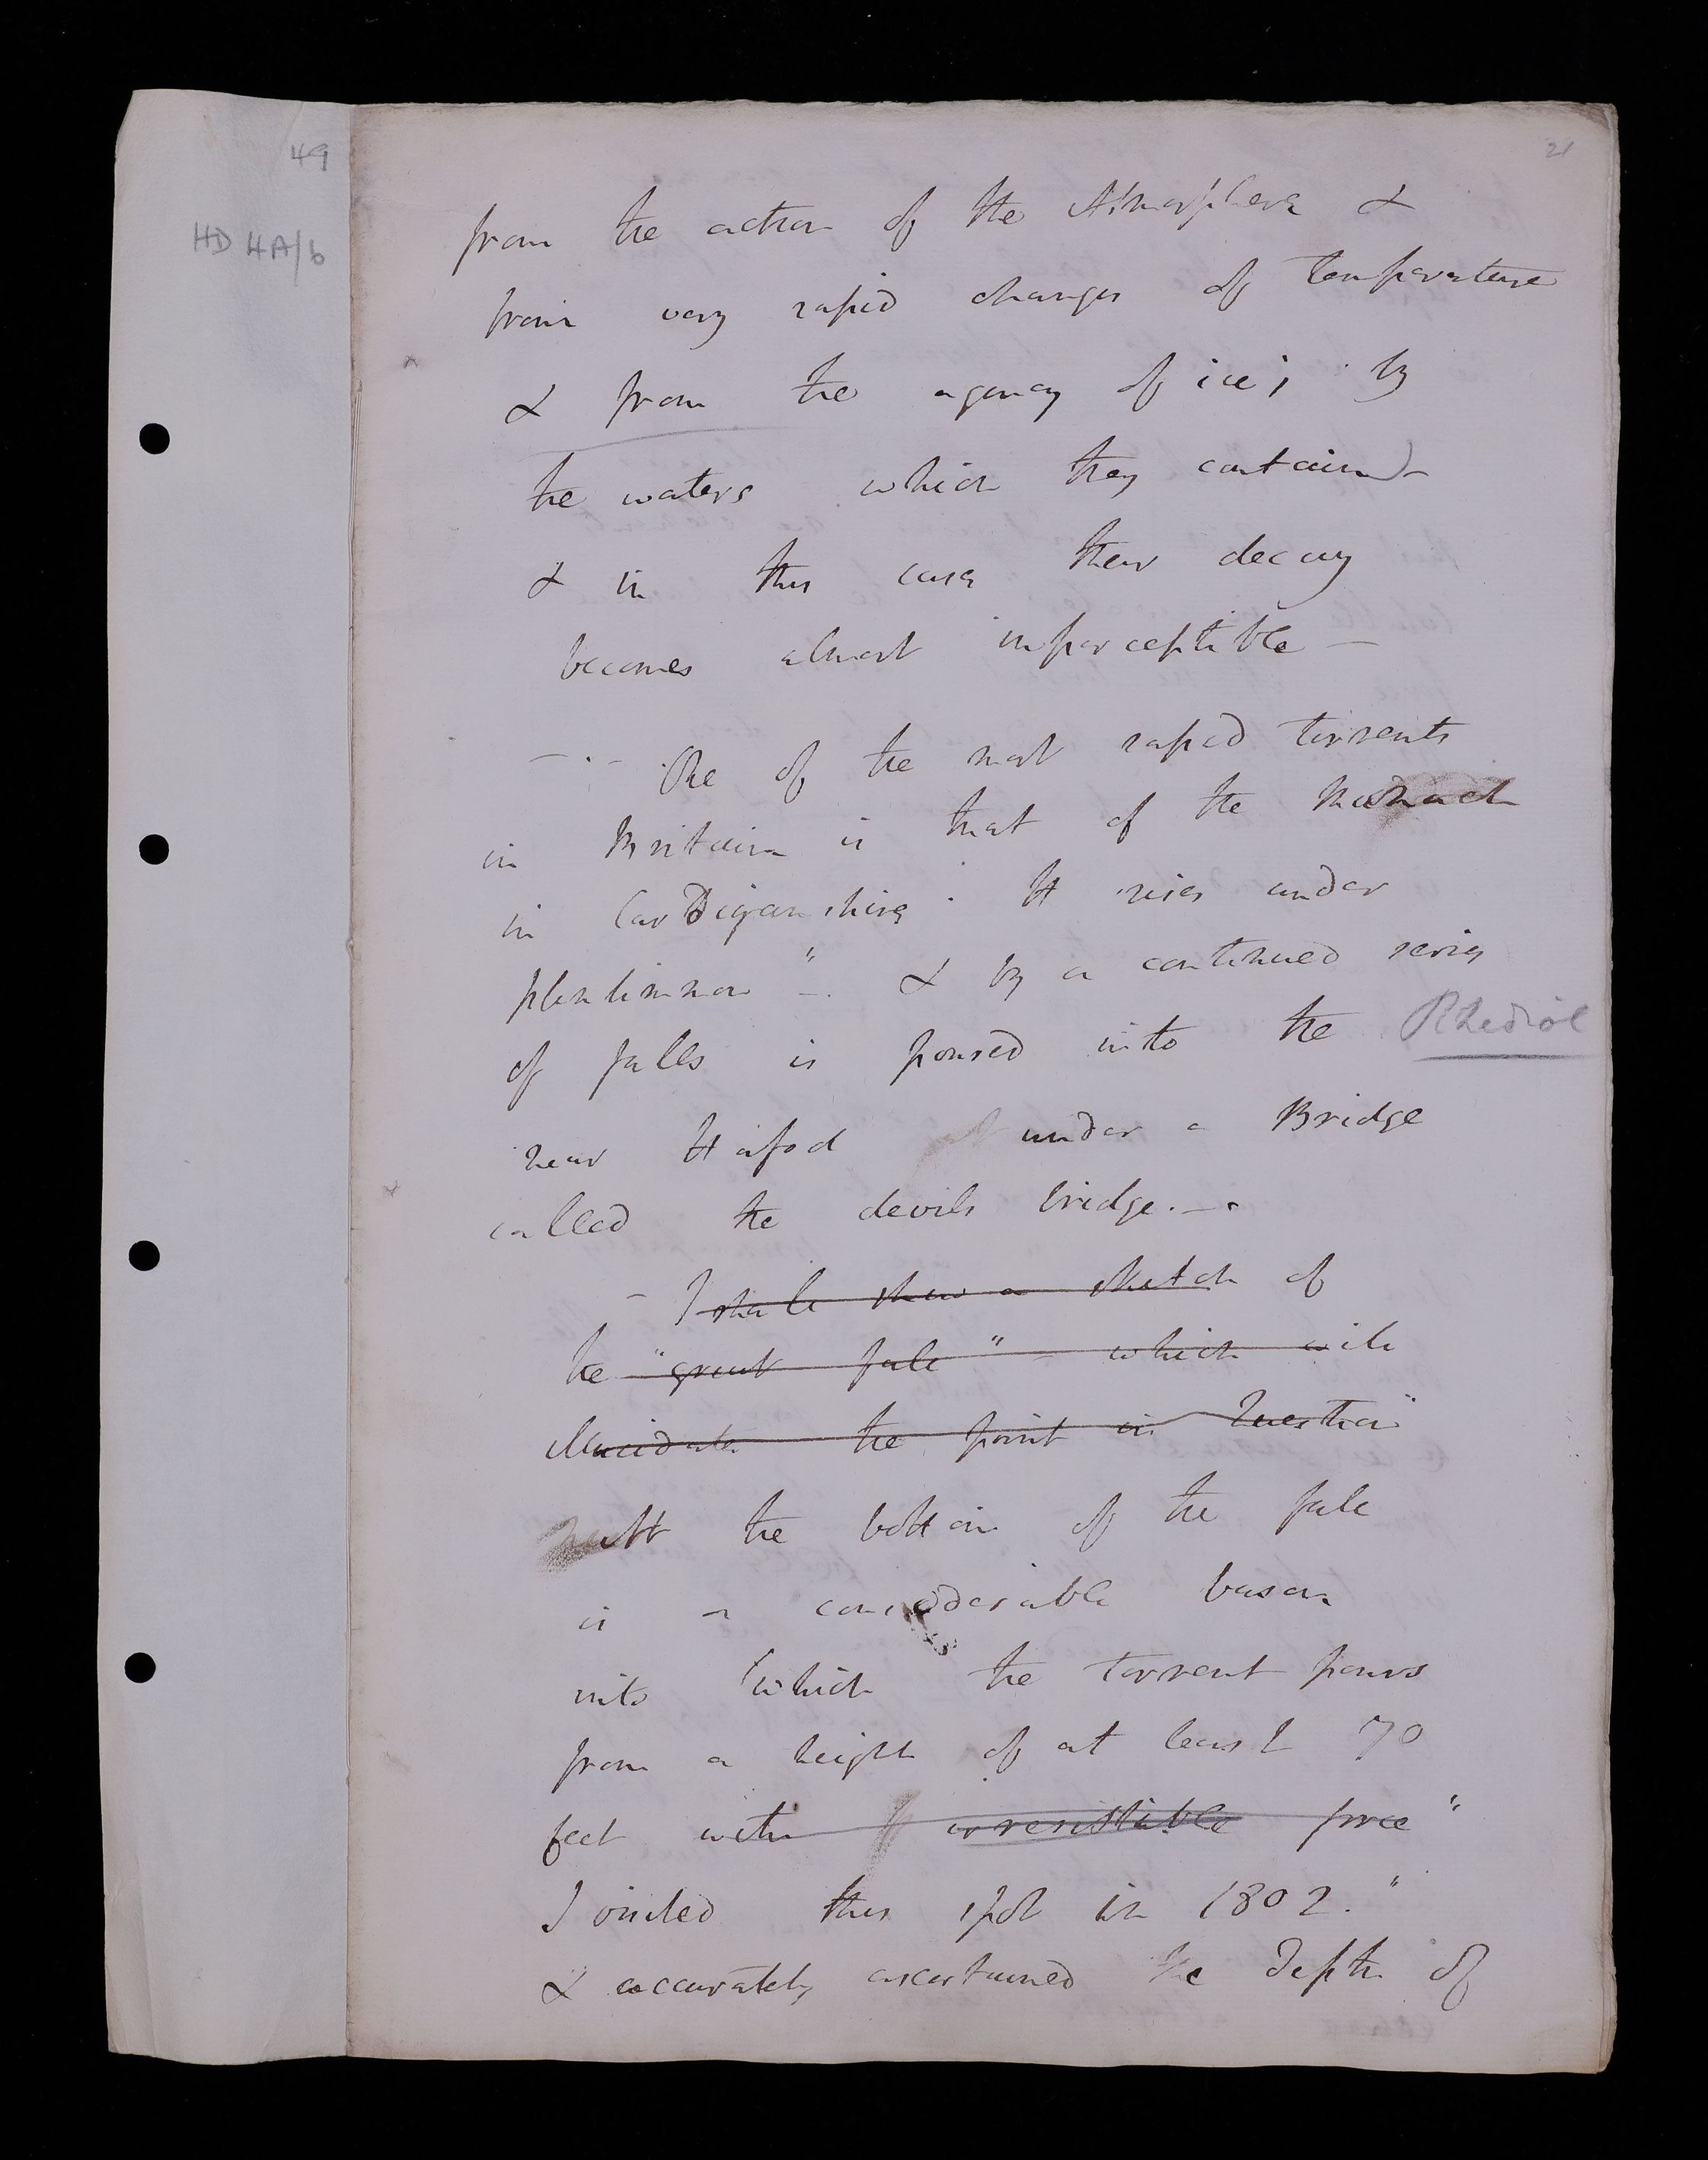 49
21
HD 4A/b
from the action of the Atmosphere &
from very rapid changes of temperature
& from the agency of ice; by
the waters which they contain)-
& in this case their decay
becomes almost imperceptible —
- . - One of the most rapid torrents
in Britain is that of the
in CarDiganshire · It rises under
plenlimmon " -. & by a continued series
of falls is poured into the Rhediol
near Hafod under a Bridge
called the devils bridge. - .
- I shall shew a sketch of
the "great fall" - which will
illucidate the point in Question"
Att the bottom of the fall
is a considerable bason
into which the torrent pours
from a height of at least 70
feet with irresistible force "
I visited this spot in 1802. "
& accurately ascertained the depth of